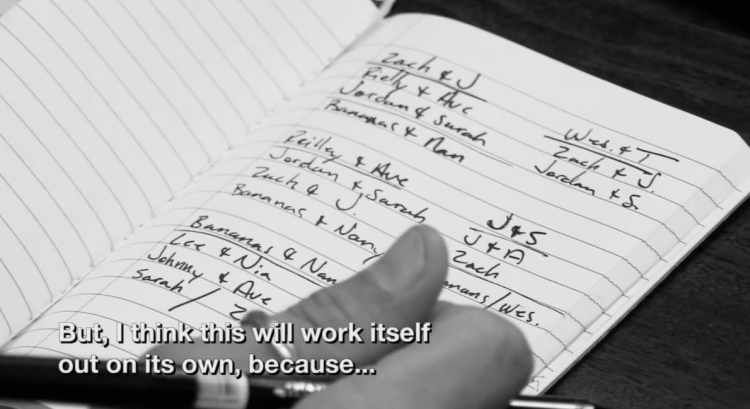 Zach & J
Rielly & Ave
Jordan & Sarah
Bananas & Nan
Reilley & Ave
Jordan & Sarah
Zach & J.
Bananas & Nany
Bananas & Nan
Lee & Nia
Johnny & Ave
Sarah / Z
Wes & T
Zach & J.
Jordan & S.
J & S
J & A
Zach
nanas/Wes.
But, I think this will work itself
out on its own, because...